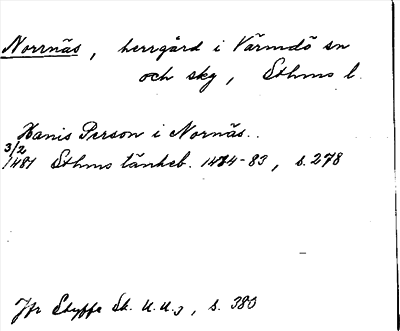 Norrnäs, herrgård i Värmdö sn
och skg, Sthms l.
Hanis Person i Nornäs..
3/2
1481 Sthms tänkeb. 1474-83, s. 278
Jfr Styffe Sk. U.U.3, s. 380